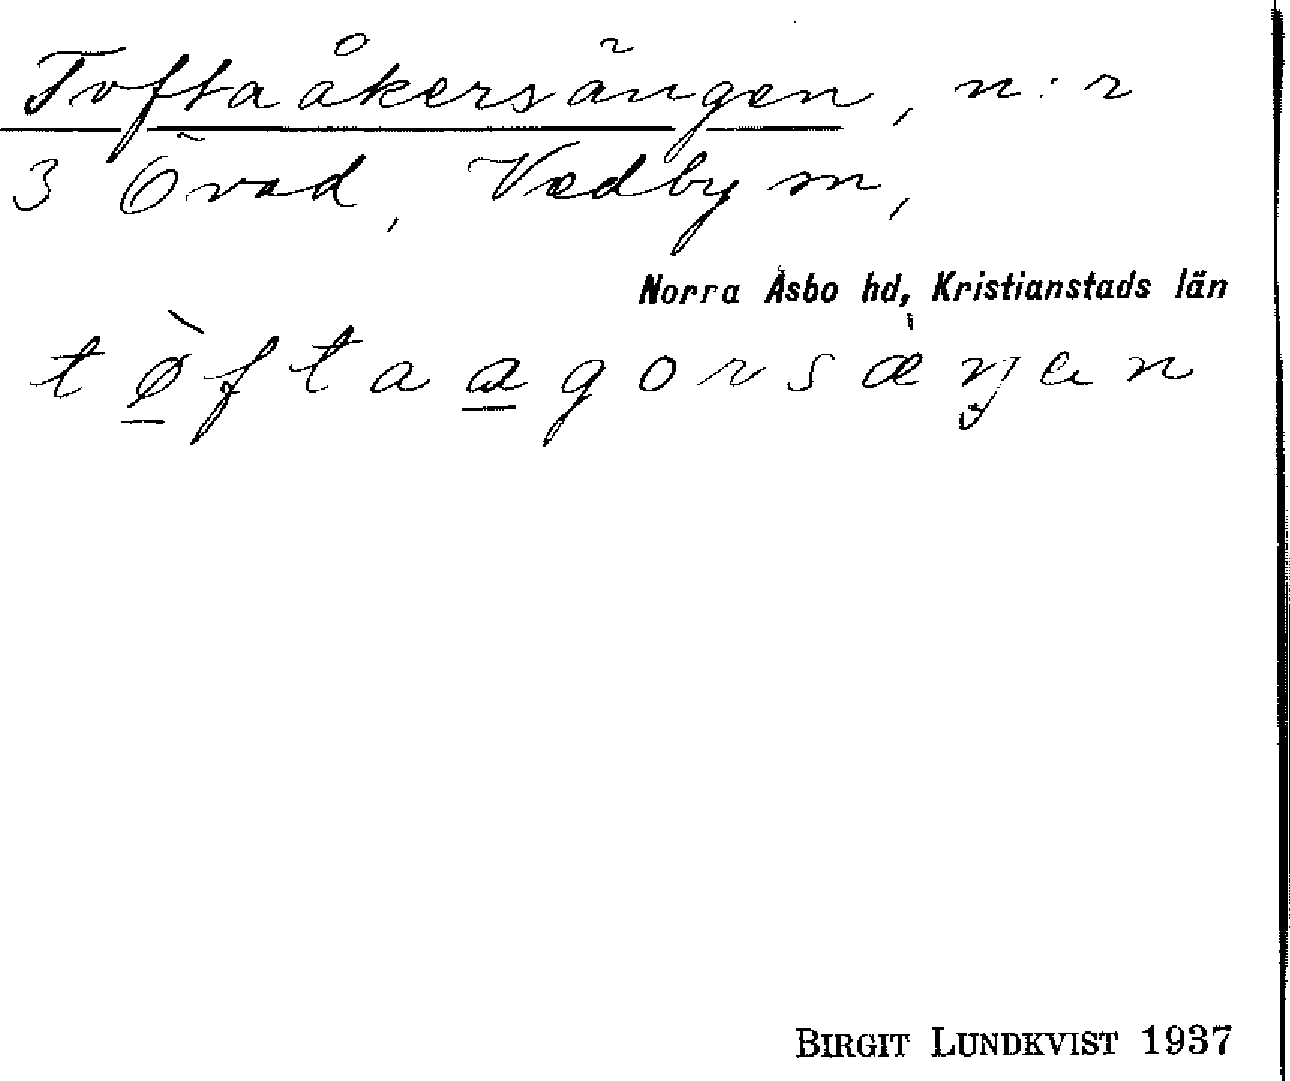 Toftaåkersängen, n:r
3 Övad, Vedby sn,
Norra Åsbo hd, Kristianstads län
tø̀ftaagorsæŋen
BIRGIT LUNDKVIST 1937